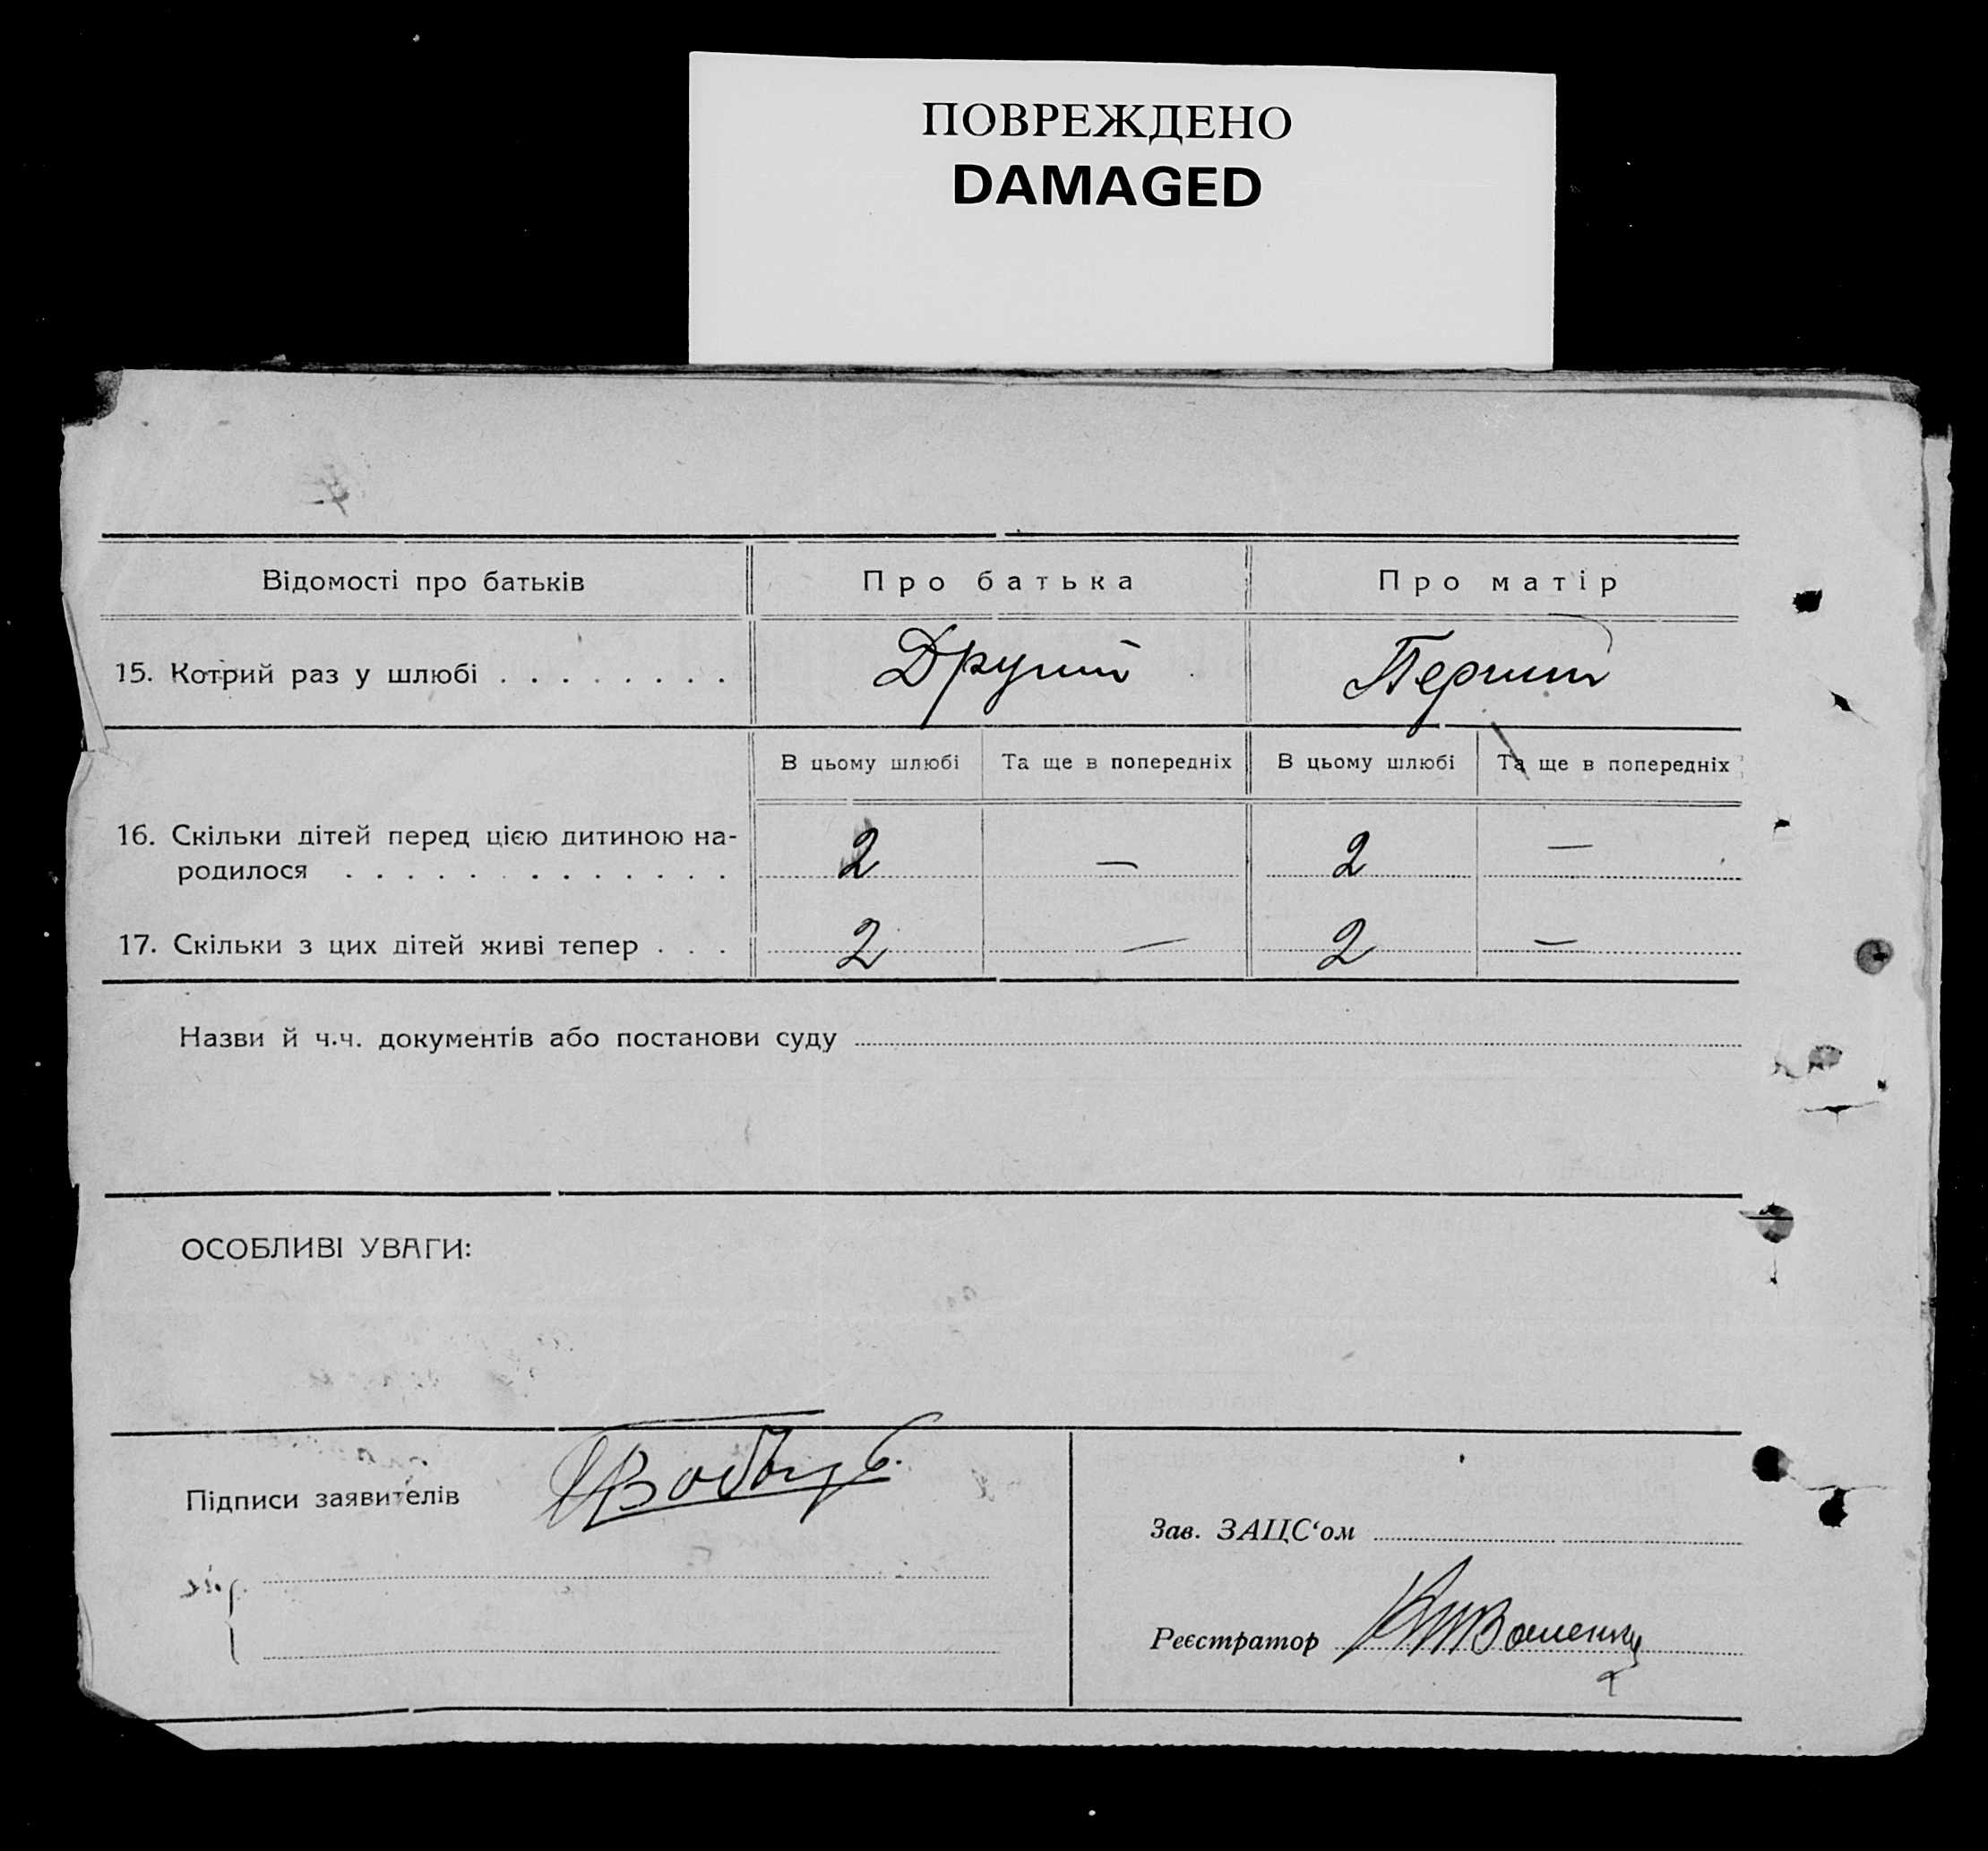 ПОВРЕЖДЕНО
DAMAGED
Відомості про батьків
Про батька
Про матір
15. Котрий раз у шлюбі . . . . . . . .
Другий
Перший
В цьому шлюбі
Та ще в попередніх
В цьому шлюбі
Та ще в попередніх
16. Скільки дітей перед цією дитиною на-
родилося . . . . . . . . . . . . .
2
—
2
—
17. Скільки з цих дітей живі тепер . . .
2
—
2
—
Назви й ч.ч. документів або постанови суду
ОСОБЛИВІ УВАГИ:
Підписи заявителів
Зав. ЗАЦС‘ом
Реєстратор